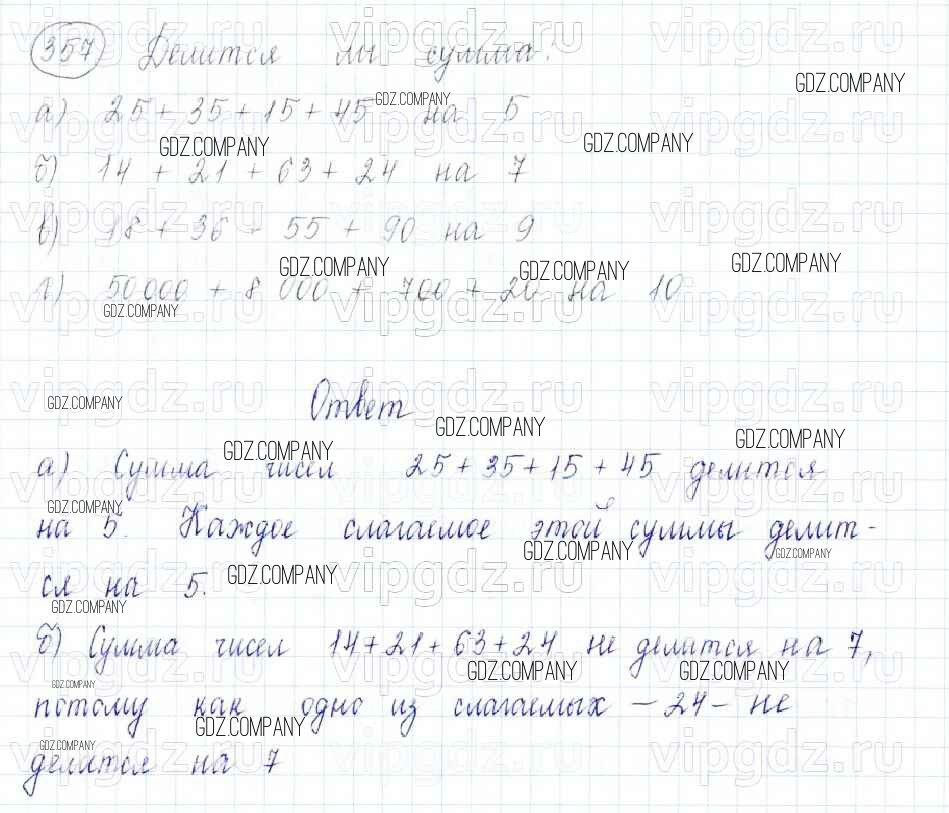 357 Делится ли сумма:
а) 25 + 35 + 15 + 45 на 5
б) 14 + 21 + 63 + 24 на 7
в) 18 + 36 + 55 + 90 на 9
г) 50 000 + 8 000 + 700 + 20 на 10
Ответ
а) Сумма чисел 25 + 35 + 15 + 45 делится
на 5. Каждое слагаемое этой суммы делит-
ся на 5.
б) Сумма чисел 14 + 21 + 63 + 24 не делится на 7,
потому как одно из слагаемых – 24 – не
делится на 7
GDZ.COMPANY
vipgdz.ru